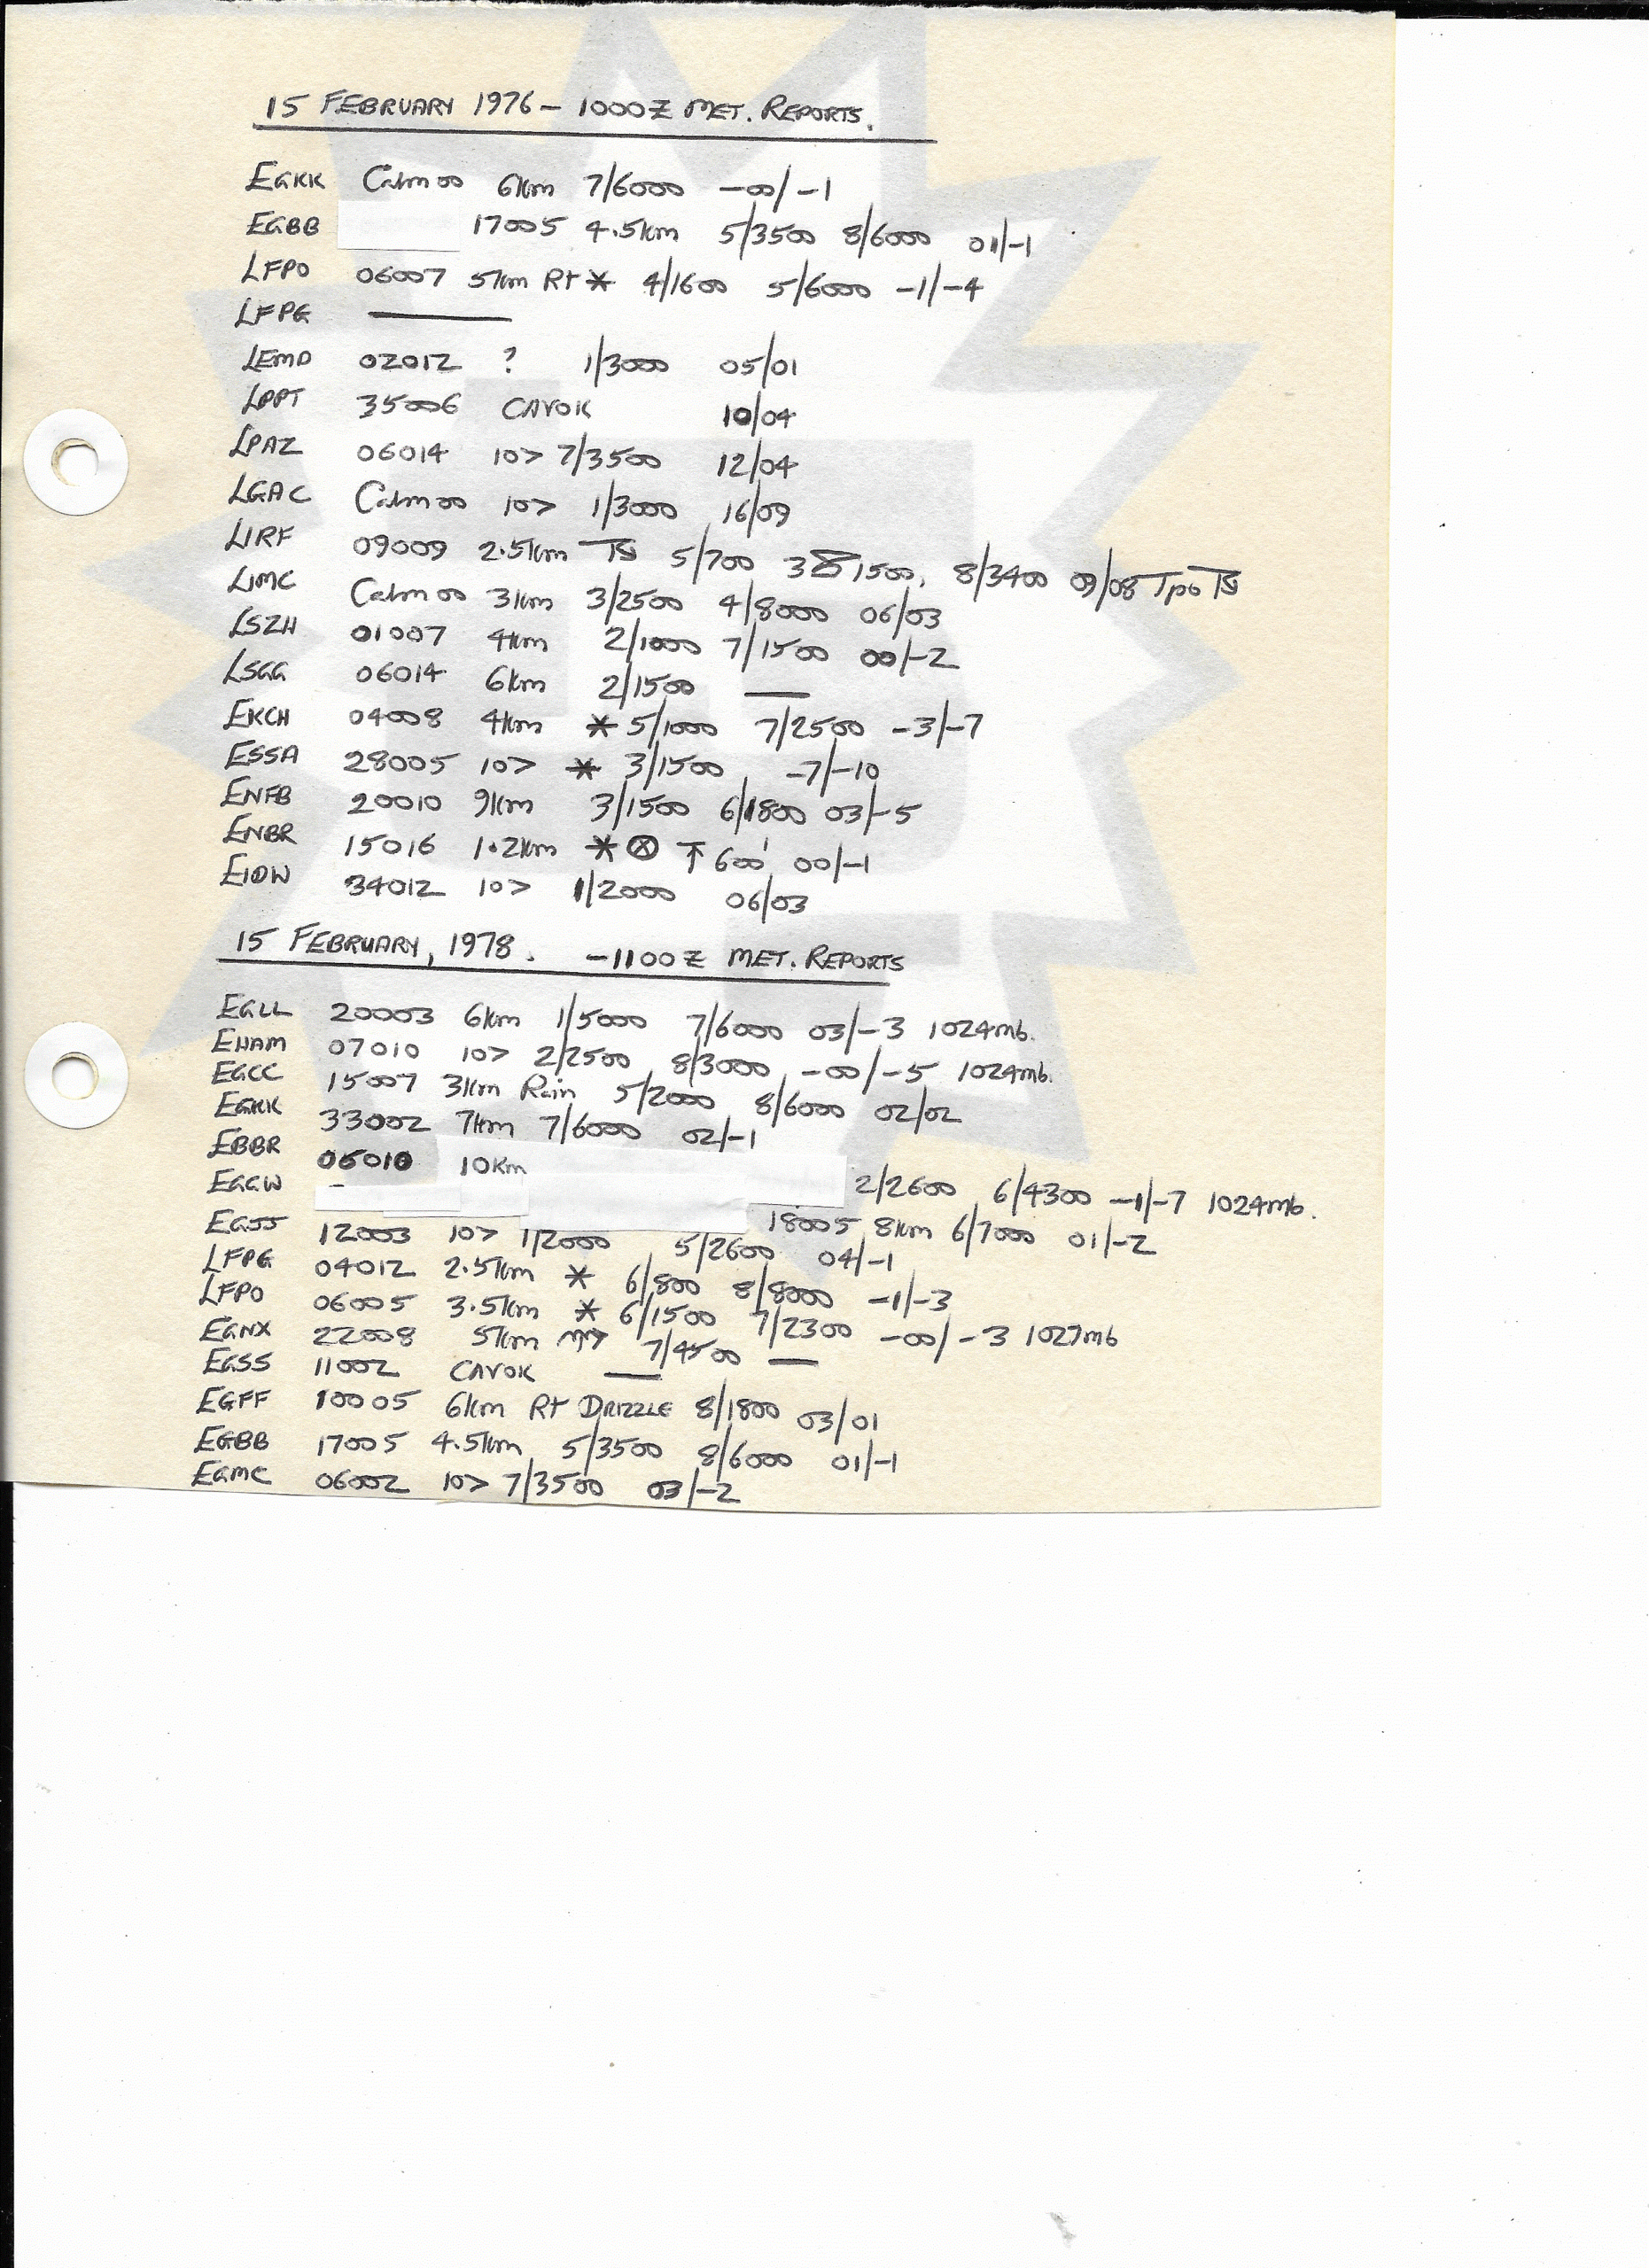 15 FEBRUARY 1976 - 1000Z MET. REPORTS.
EGKK Calm 00 6km 7/6000 -00/-1
EGBB 17005 4.5km 5/3500 8/6000 01/-1
LFPO 06007 5km Rt * 4/1600 5/6000 -1/-4
LFPG —
LEMD 02012 ? 1/3000 05/01
LPPT 35006 CAVOK 10/04
LPAZ 06014 10> 7/3500 12/04
LGAC Calm 00 10> 1/3000 16/09
LIRF 09009 2.5km TS 5/700 1500, 8/3400 09/08 Tpo TS
LIMC Calm 00 3km 3/2500 4/8000 06/03
LSZH 01007 4km 2/1000 7/1500 00/-2
LSGG 06014 6km 2/1500 —
EKCH 04008 4km * 5/1000 7/2500 -3/-7
ESSA 28005 10> * 3/1500 -7/-10
ENFB 20010 9km 3/1500 6/1800 03/-5
ENBR 15016 1.2km * ⊗ ↑ 600' 00/-1
EIDW 34012 10> 1/2000 06/03
15 FEBRUARY, 1978. -1100Z MET. REPORTS
EGLL 20003 6km 1/5000 7/6000 03/-3 1024mb.
EHAM 07010 10> 2/2500 8/3000 -00/-5 1024mb.
EGCC 15007 3km Rain 5/2000 8/6000 02/02
EGKK 33002 7km 7/6000 02/-1
EBBR 06010 10Km 2/2600 6/4300 -1/-7 1024mb.
EGGW - 18005 8km 6/7000 01/-2
EGJJ 12003 10> 1/2000 5/2600 04/-1
LFPG 04012 2.5km * 6/800 8/8000 -1/-3
LFPO 06005 3.5km * 6/1500 7/2300 -00/-3 1027mb
EGNX 22008 5km 7/4500 —
EGSS 11002 CAVOK —
EGFF 10005 6km Rt DRIZZLE 8/1800 03/01
EGBB 17005 4.5km 5/3500 8/6000 01/-1
EGMC 06002 10> 7/3500 03/-2